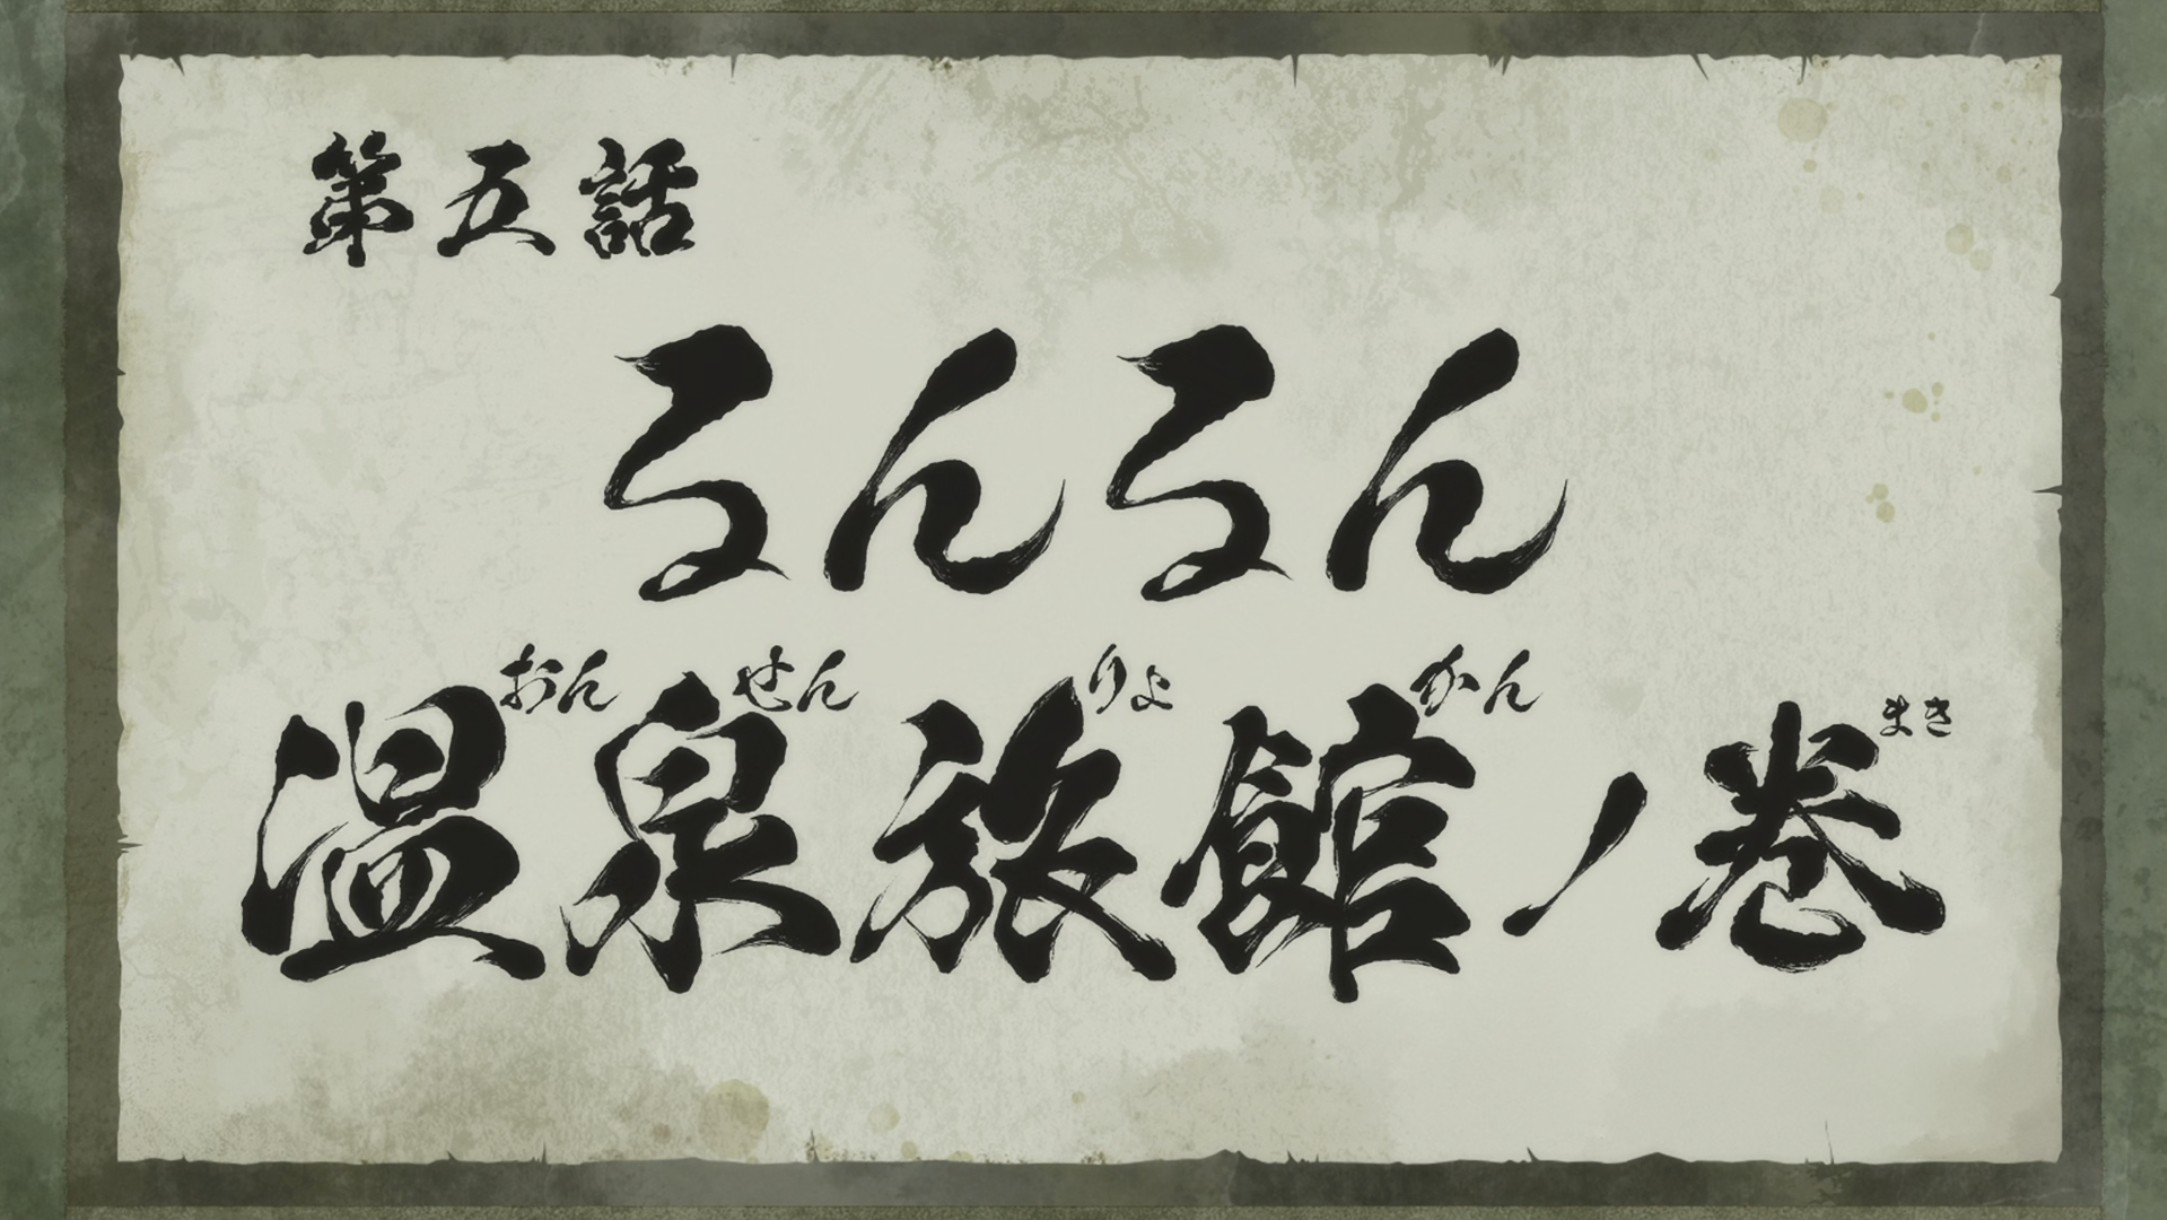 第五話
るんるん
温泉旅館ノ巻
おんせんりょかん まき